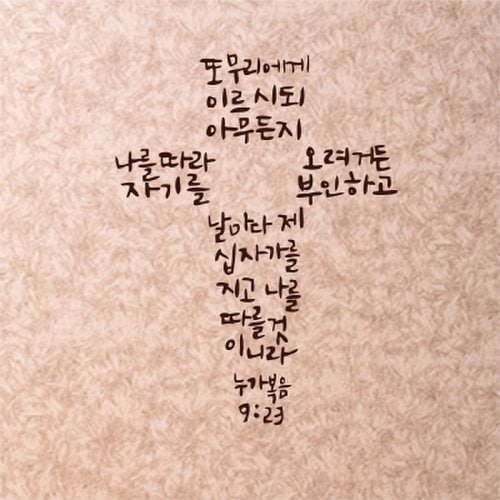 또 무리에게
이르시되
아무든지
나를 따라 오려거든
자기를 부인하고
날마다 제
십자가를
지고 나를
따를 것
이니라
누가복음
9:23